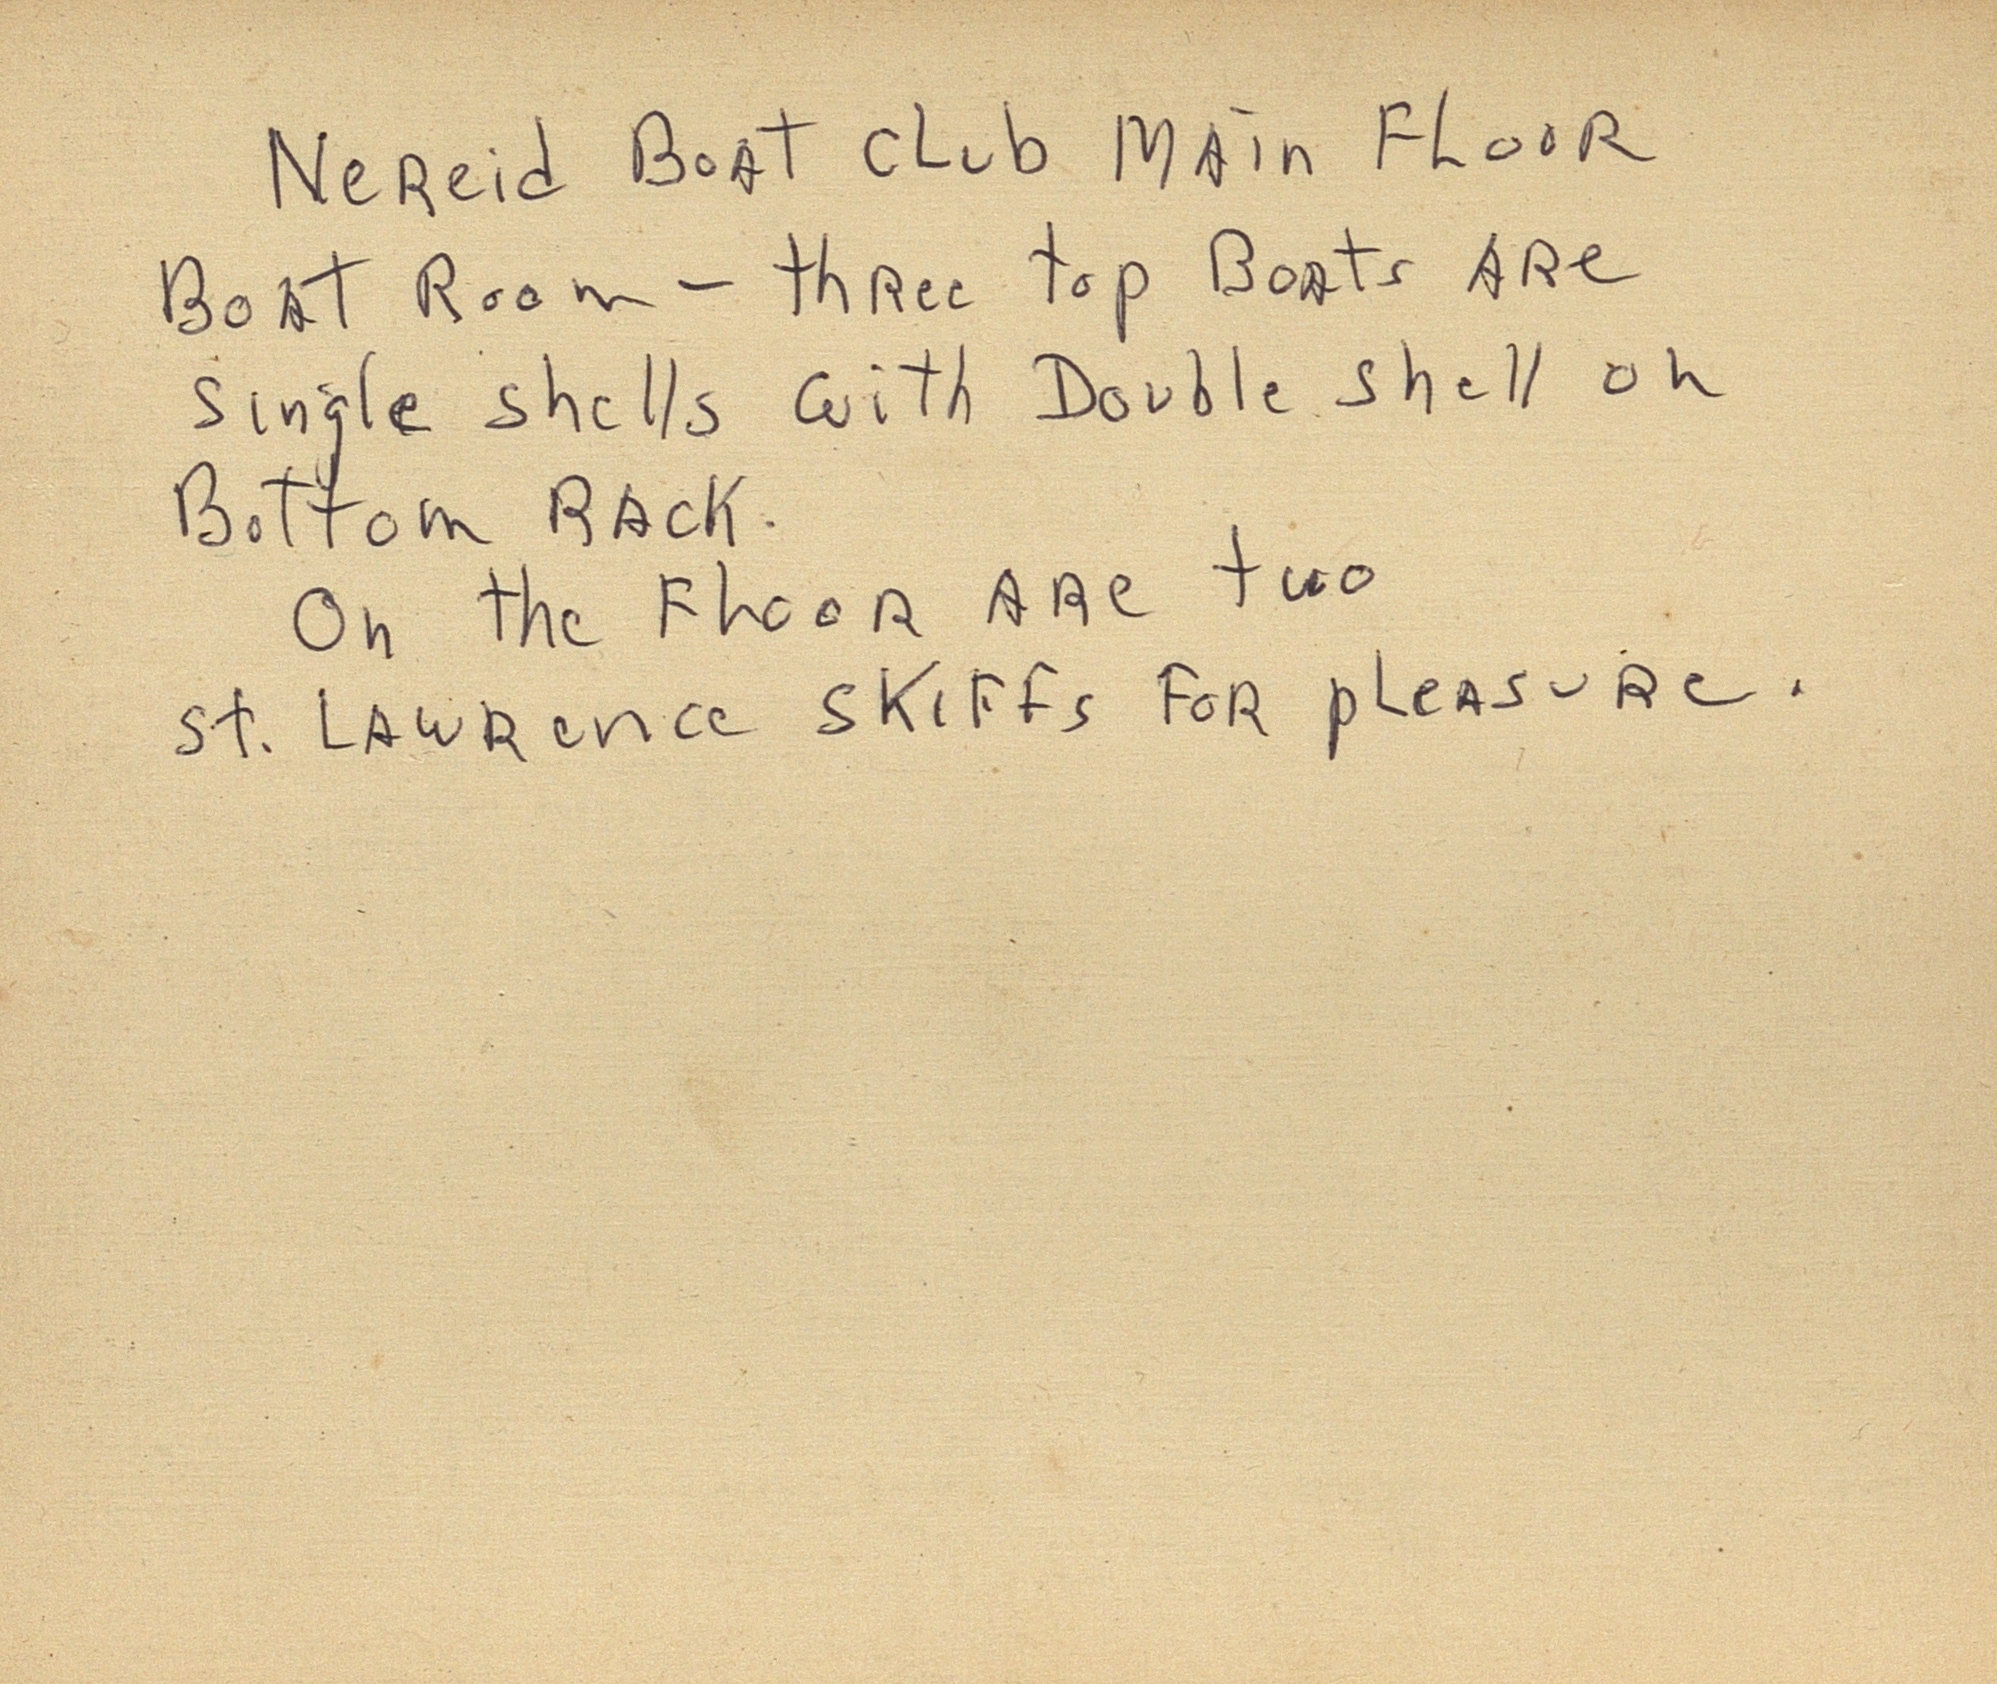 Nereid Boat Club Main Floor
Boat Room - three top Boats are
single shells with Double shell on
Bottom Rack.
On the Floor are two
St. Lawrence skiffs for pleasure.